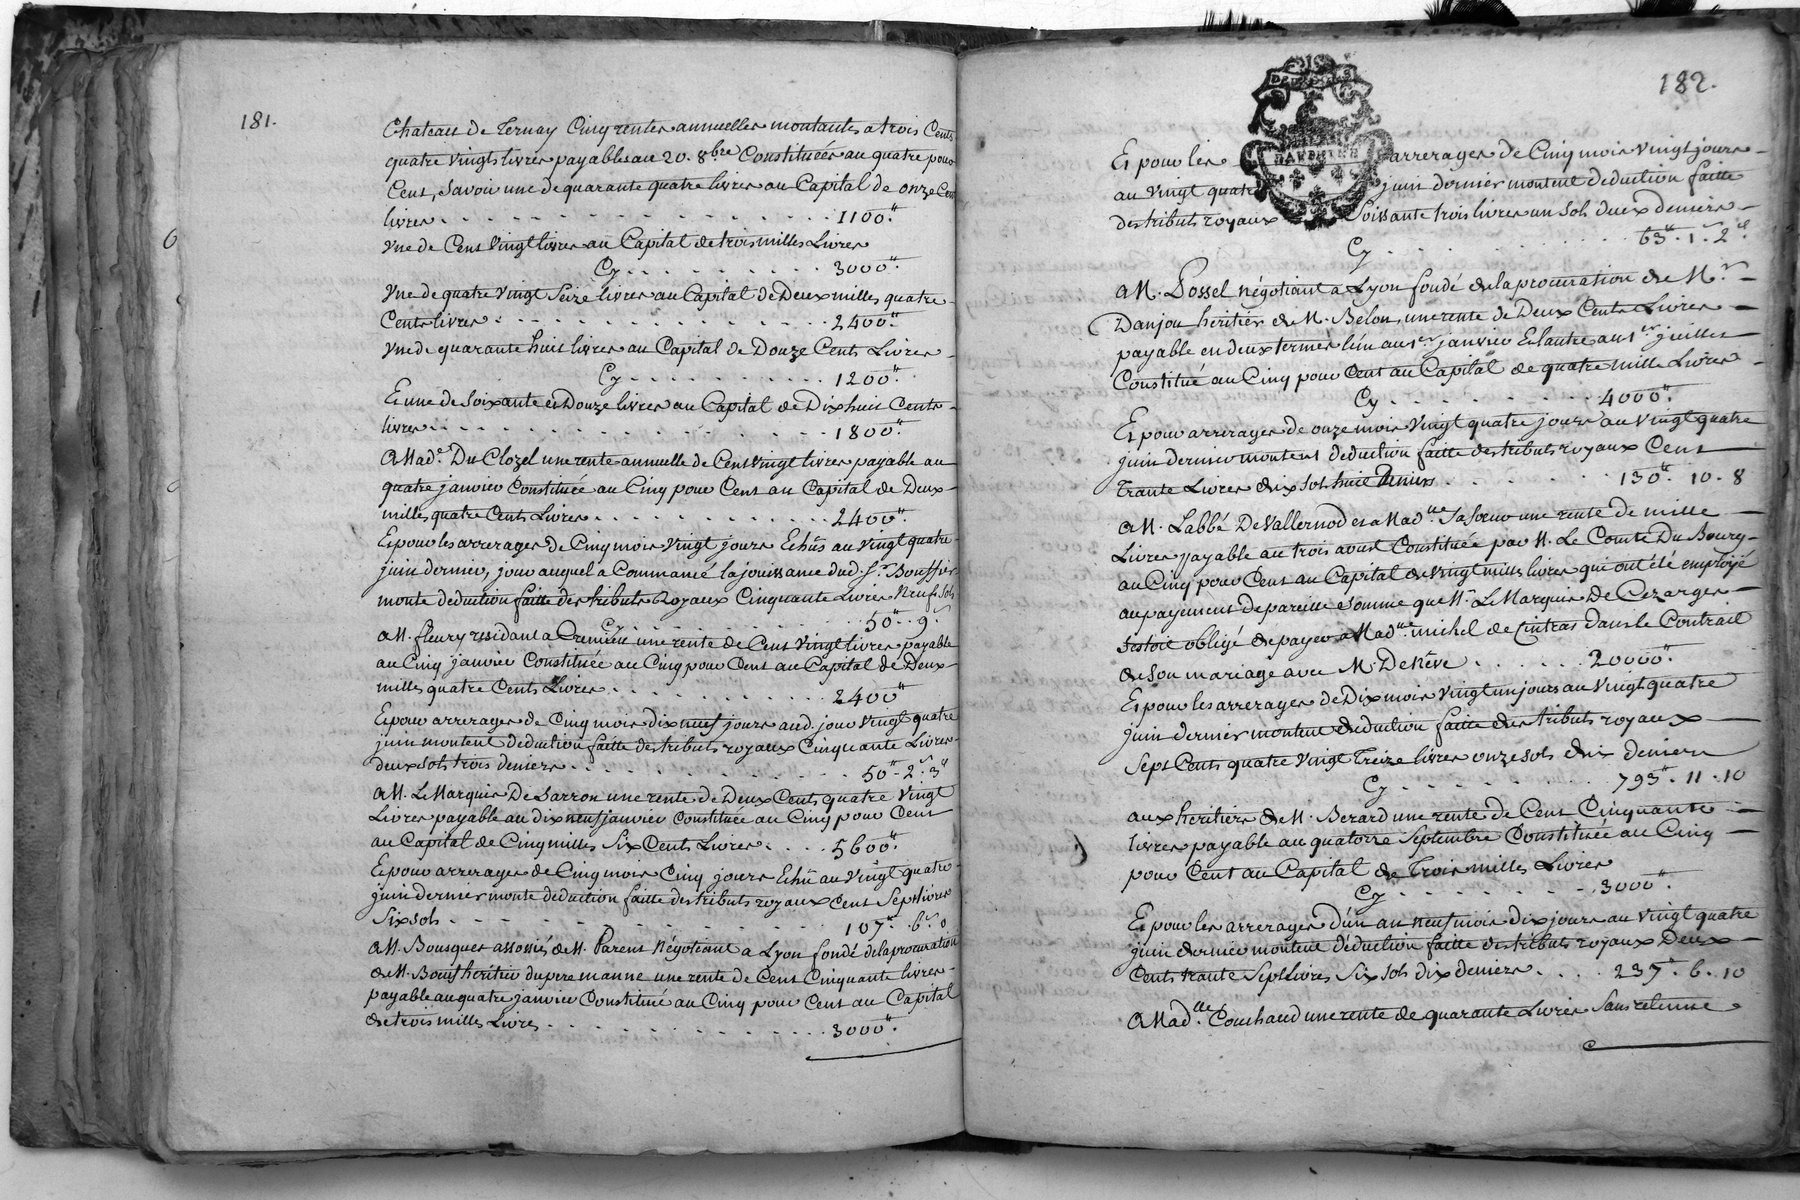 181.
Chateau de Ternay Cinq rentes annuelles montantes a trois Cents
quatre vingts livres payables au 20. 8bre Constituées au quatre pour
Cent, Savoir une de quarante quatre livres au Capital de onze Cent
livres 1100"
Une de Cent Vingt livres au Capital de trois milles Livres
Cy 3000"
Une de quatre Vingt Seize livres au Capital de Deux milles quatre
Cents livres 2400"
Une de quarante huit livres au Capital de Douze Cents Livres
Cy 1200"
Et une de Soixante et Douze livres au Capital de Dix huit Cents
livres 1800"
A Made. Du Clozel une rente annuelle de Cent Vingt livres payable au
quatre janvier Constituée au Cinq pour Cent au Capital de Deux
milles quatre Cents Livres 2400"
Et pour les arrerages de Cinq mois Vingt jours Echûs au Vingt quatre
juin dernier, jour auquel a Commancé la jouissance dud. Sr. Bouffier
monte deduction faitte des tributs Royaux Cinquante Livres Neuf Sols
Cy 50 . 9
a M. fleury residant a Cremieu une rente de Cent Vingt livres payable
au Cinq janvier Constituée au Cinq pour Cent au Capital de Deux
milles quatre Cents Livres 2400"
Et pour arrerages de Cinq mois dix neuf jours aud. jour Vingt quatre
juin montent deduction faitte des tributs royaux Cinquante Livres
deux sols trois deniers 50" 2s 3d
a M. Le Marquis De Sarron une rente de Deux Cents quatre Vingt
Livres payable au dix neuf janvier Constituée au Cinq pour Cent
au Capital de Cinq milles Six Cents Livres 5600"
Et pour arrerages de Cinq mois Cinq jours Echû au Vingt quatre
juin dernier monte deduction faitte des tributs royaux Cent Sept livres
Six sols 107" 6s 0
a M. Bousquet associé de M. Parent Négotiant a Lyon fondé de la procuration
de M. Bœuf heritier du pere manne une rente de Cent Cinquante livres
payable au quatre janvier Constitué au Cinq pour Cent au Capital
de trois milles Livres 3000"
182.
DAUPHINE
Et pour les arrerages de Cinq mois Vingt jours
au Vingt quatre juin dernier montent deduction faitte
des tributs royaux Soixante trois livres un Sols deux deniers
Cy 63" 1s 2d
a M. Possel négotiant a Lyon fondé de la procuration de Mr
Danjou heritier de M. Belon, une rente de Deux Cents Livres
payable en deux termes l'un au 1er janvier Et l'autre au 1er juillet
Constitué au Cinq pour Cent au Capital de quatre mille Livres
Cy 4000"
Et pour arrerages de onze mois Vingt quatre jours au Vingt quatre
juin dernier montent deduction faitte des tributs royaux Cent
trante Livres dix sols huit Deniers 130" 10 . 8
a M. Labbé De Vallernod et a Madlle Sa Sœur une rente de mille
Livres payable au trois aoust Constituée par M. Le Comte Du Bourg
au Cinq pour Cent au Capital de Vingt mille livres qui ont été employé
au payement de pareille Somme que Mr. Le Marquis De Cezarges
s'estoit obligé de payer a Madlle michel de Cintras dans le Contrait
de son mariage avec M. De Rêve 20000"
Et pour les arrerages de Dix mois Vingt un jours au Vingt quatre
juin dernier montent deduction faitte des tributs royaux
Sept Cents quatre Vingt Treize livres onze sols dix deniers
Cy 793" 11 . 10
aux heritiers de M. Berard une rente de Cent Cinquante
livres payable au quatorze Septembre Constituée au Cinq
pour Cent au Capital de Trois milles Livres
Cy 3000"
Et pour les arrerages d'un an neuf mois dix jours au Vingt quatre
juin dernier montent déduction faitte des tributs royaux Deux
Cents trante Sept Livres Six Sols dix deniers 237" 6 . 10
A Madlle Couchaud une rente de quarante Livres Sans retenue